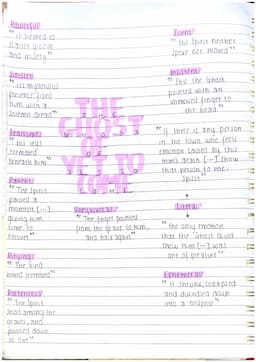 Powerful
" it seemed to
scatter gloom
and misery"
Sinister
" its mysterious
presence filled
him with a
solemn dread"
Fearsome
" his legs
trembled
beneath him"
Patient
" The Spirit
paused a
moment [...]
giving him
time to
recover"
Pitying
" The kind
hand trembled"
Portentous
" The Spirit
stood among the
graves, and
pointed down
to One"
THE
GHOST
OF
YET TO
COME
Unequivocal
" The finger pointed
from the grave to him,
and back again"
" The Spirit neither
spoke nor moved"
Insistent
" Still the Ghost
pointed with an
unmoved finger to
the head"
" If there is any person
in the town who feels
emotion caused by this
man's death [...] show
that person to me,
Spirit"
Literal
" the only emotion
that the Ghost could
show him [...] was
one of pleasure"
Ephemeral
" it shrunk, collapsed
and dwindled down
into a bedpost"